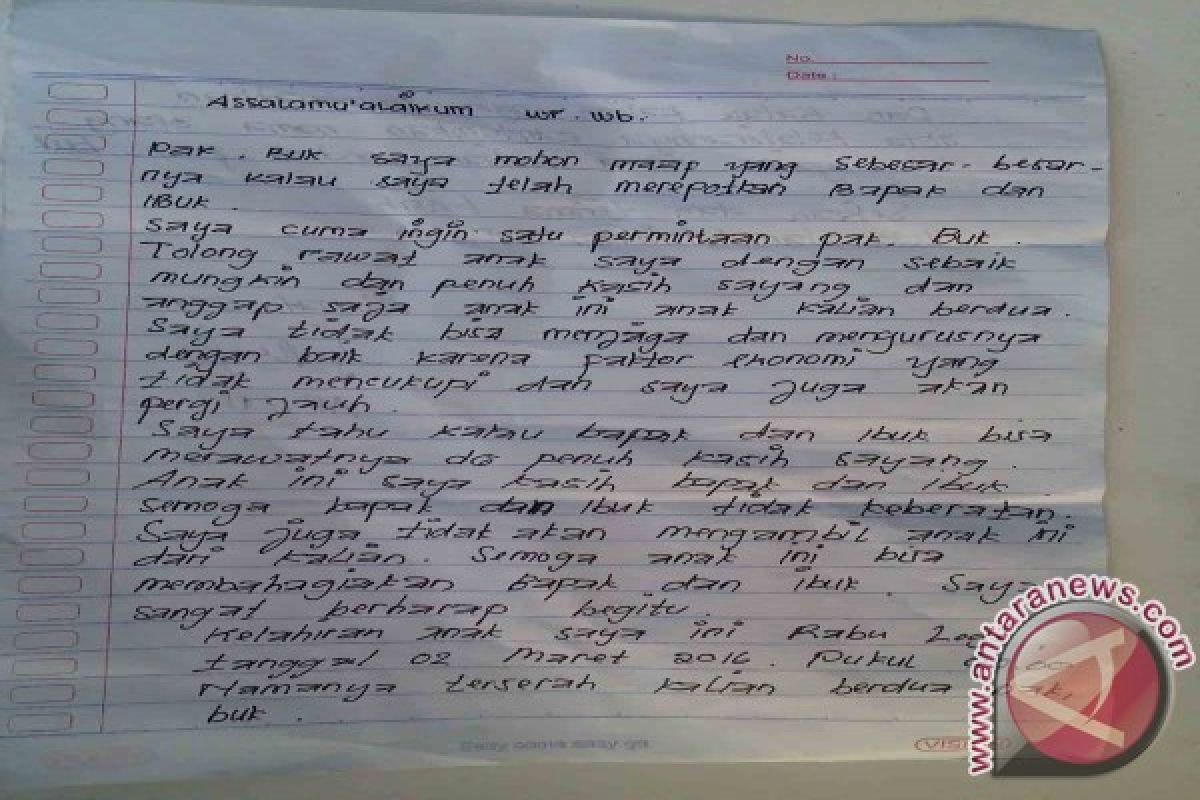 No.
Date :
Assalamu'alaikum wr. wb.
Pak. Buk saya mohon maap yang sebesar-besar-
nya kalau saya telah merepotkan Bapak dan
Ibuk.
Saya cuma ingin satu permintaan pak. Buk.
Tolong rawat anak saya dengan sebaik
mungkin dan penuh kasih sayang dan
anggap saja anak ini anak kalian berdua.
Saya tidak bisa menjaga dan mengurusnya
dengan baik karena faktor ekonomi yang
tidak mencukupi dan saya juga akan
pergi jauh.
Saya tahu kalau bapak dan ibuk bisa
merawatnya dg penuh kasih sayang.
Anak ini saya kasih bapak dan ibuk.
semoga bapak dan ibuk tidak keberatan.
Saya juga tidak akan mengambil anak ini
dari kalian. Semoga anak ini bisa
membahagiakan bapak dan ibuk. Saya
sangat berharap begitu.
Kelahiran anak saya ini Rabu
tanggal 02 Maret 2016. Pukul
Namanya terserah kalian berdua pak,
buk.
www.antaranews.com